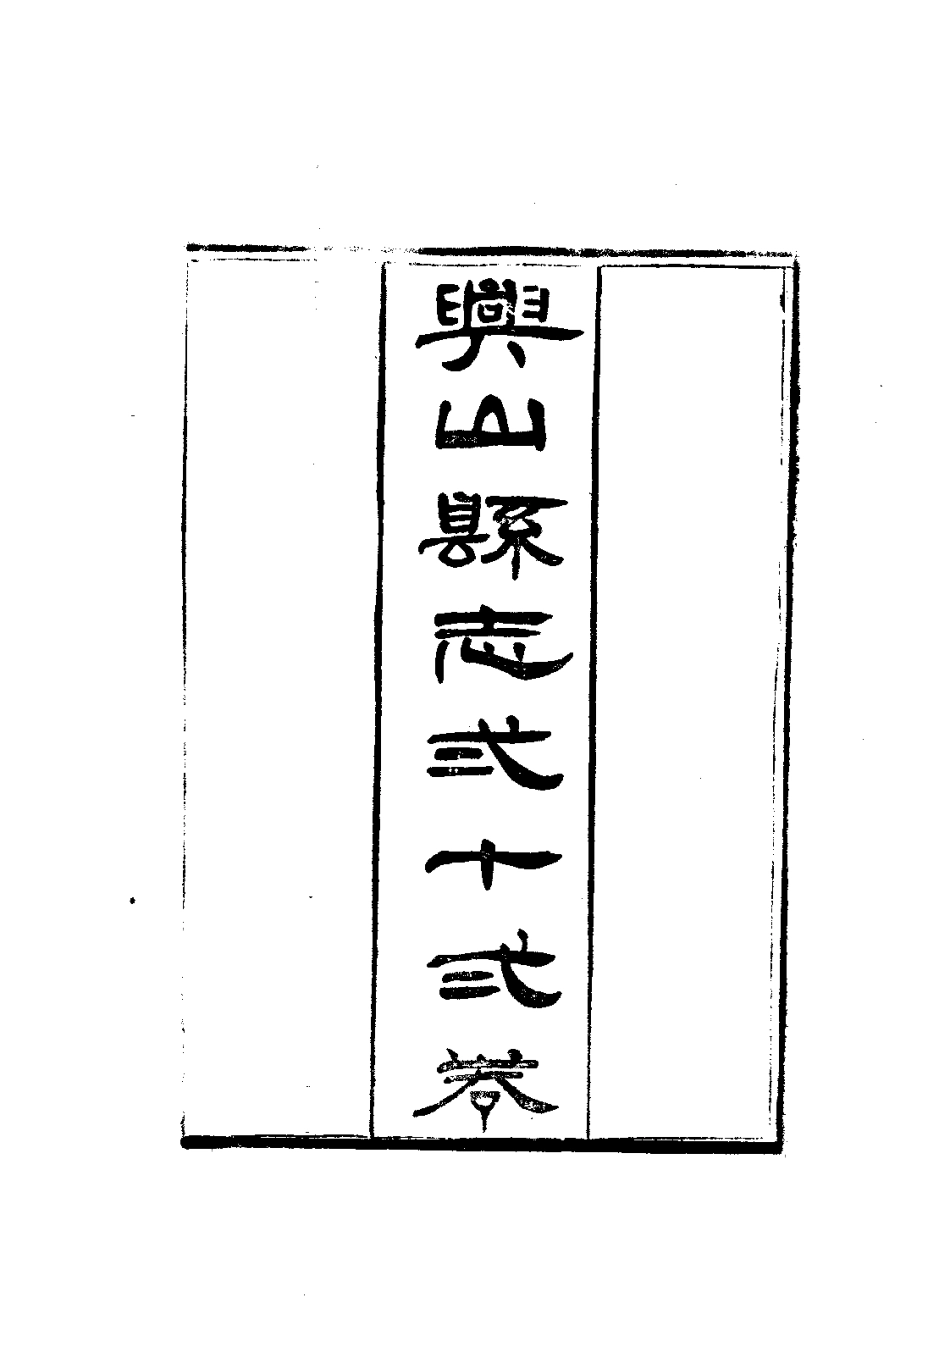 興山縣志弍十弍卷